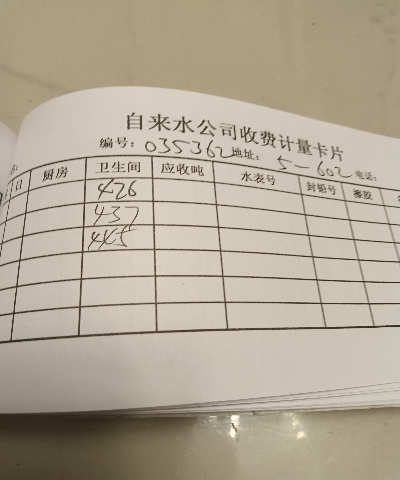 自来水公司收费计量卡片
编号: 035362 地址: 5-602 电话:
日 厨房 卫生间 应收吨 水表号 封铅号
426
437
445